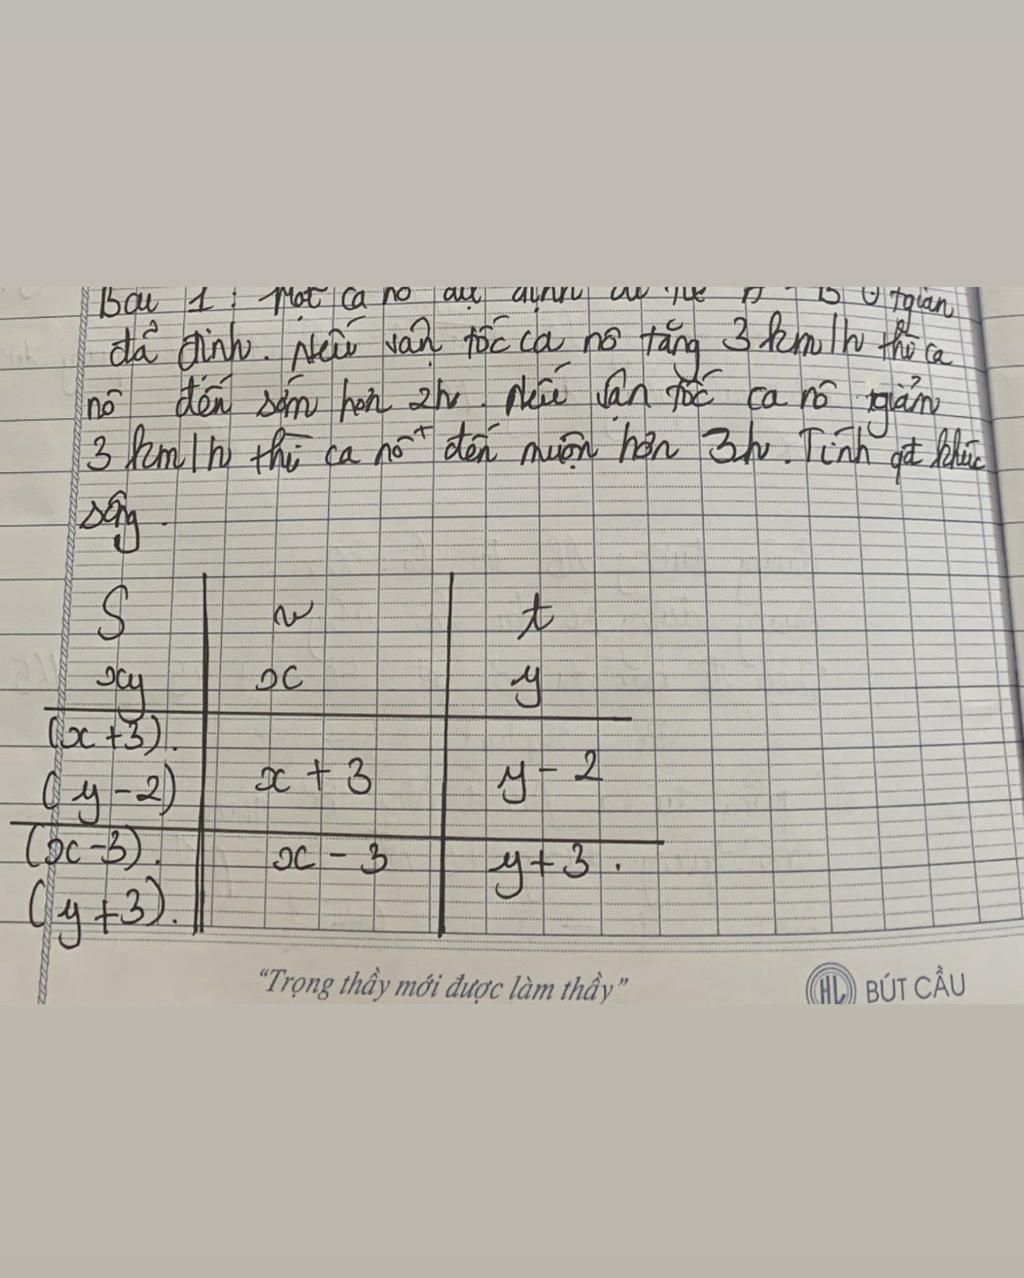 Bài 1: Một ca nô dự định đi từ A - B tgian
đã định. Nếu vận tốc ca nô tăng 3 km/h thì ca
nô đến sớm hơn 2h. Nếu vận tốc ca nô giảm
3 km/h thì ca nô đến muộn hơn 3h. Tính khúc
sông.
S v t
xy x y
(x+3).
(y-2) x+3 y-2
(x-3). x-3 y+3.
(y+3).
"Trọng thầy mới được làm thầy" HL BÚT CẦU